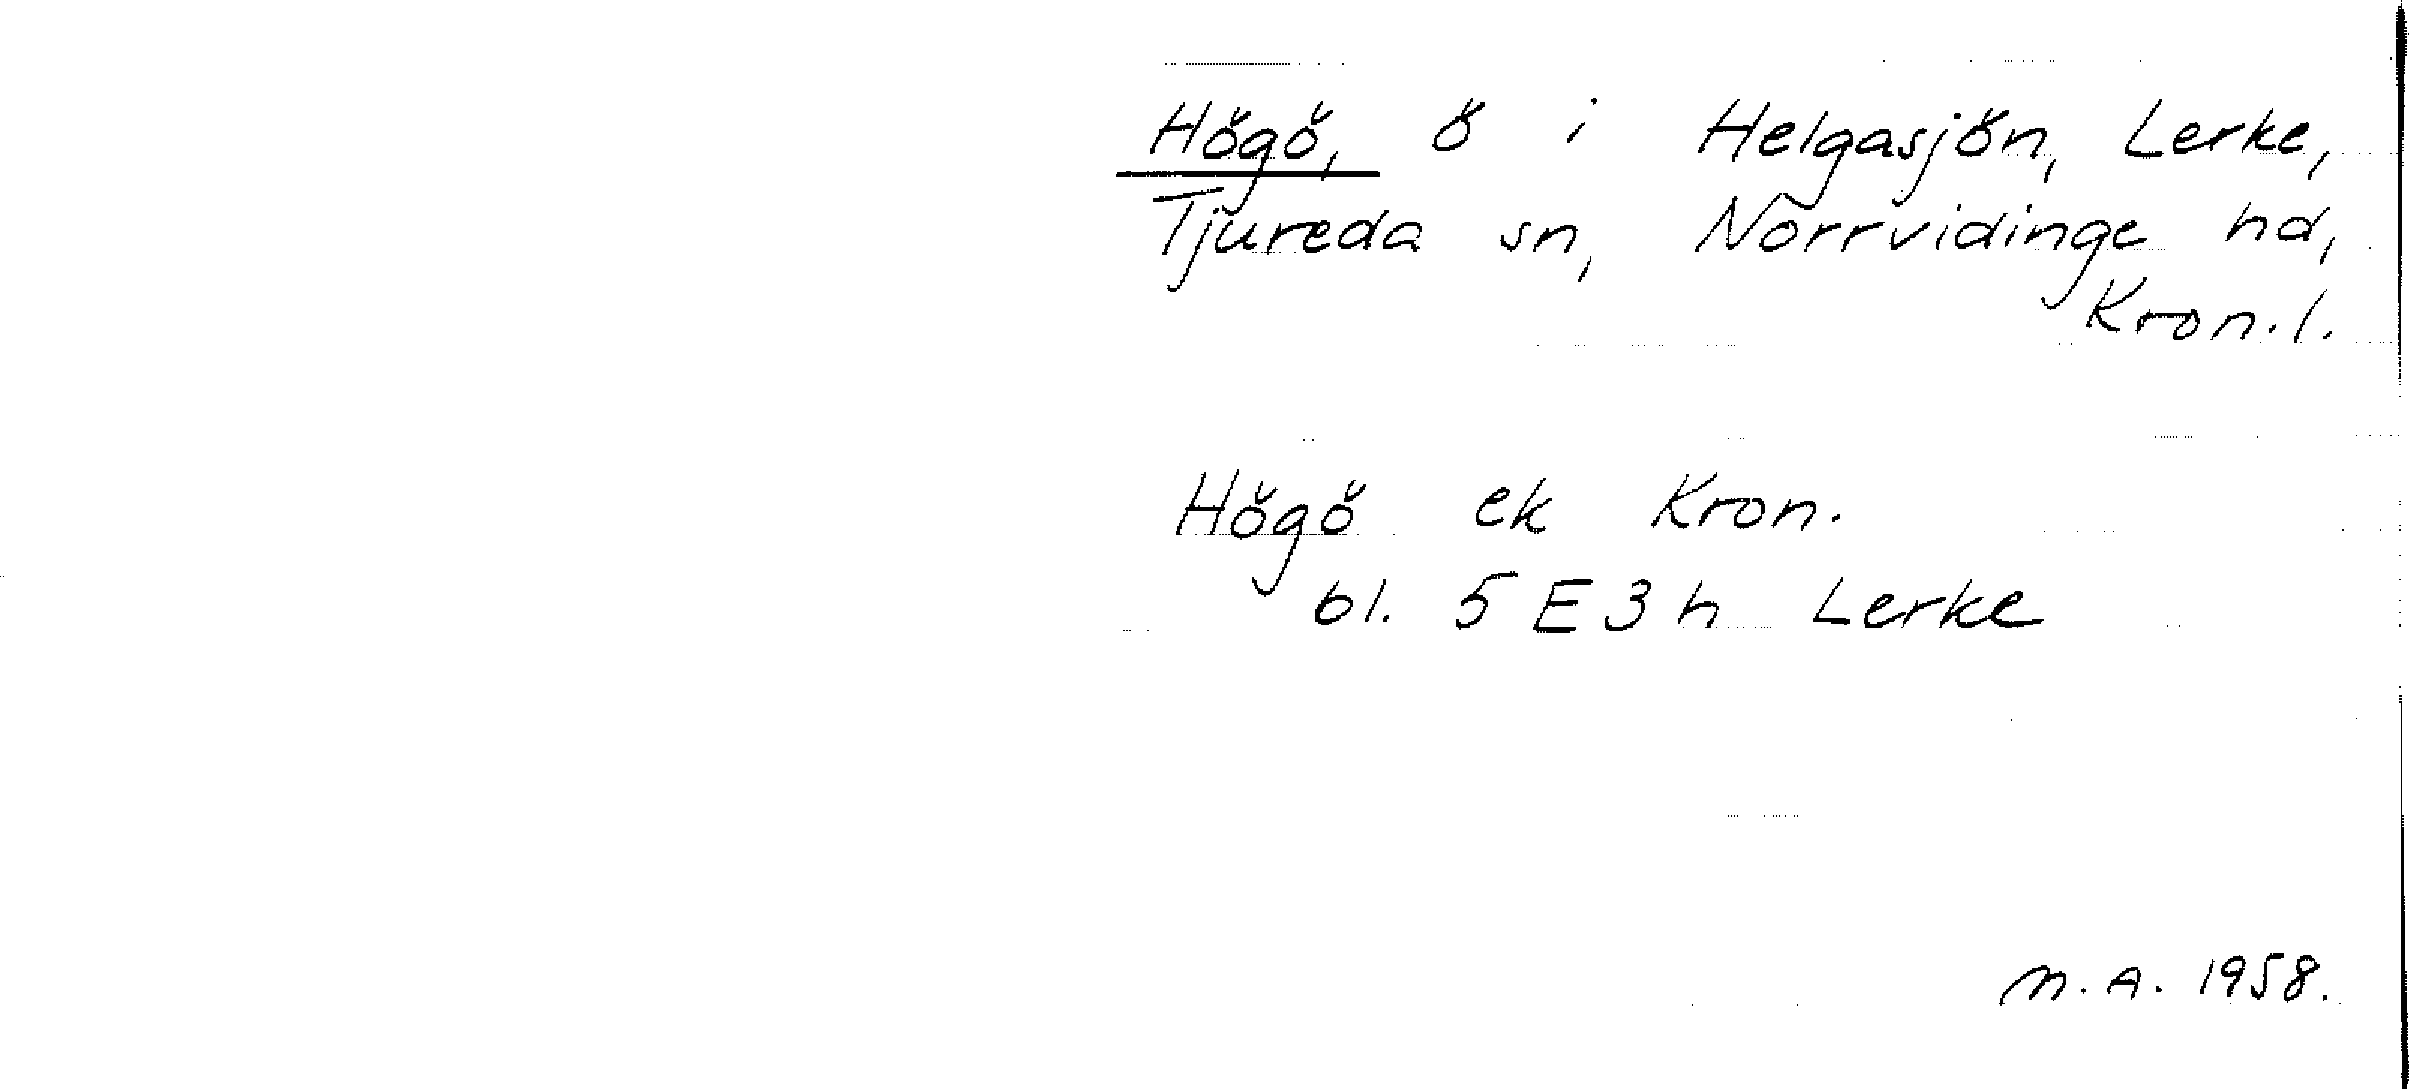 Högö, ö i Helgasjön, Lerke,
Tjureda sn, Norrvidinge hd,
Kron.l.
Högö ek Kron.
bl. 5 E 3 h Lerke
M.A. 1958.